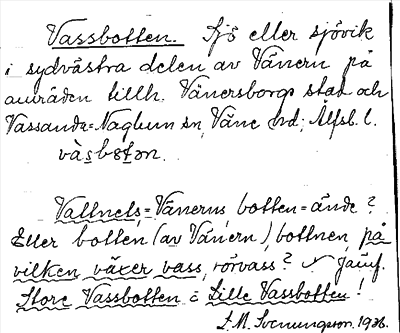 Vassbotten. Sjö eller sjövik
i sydvästra delen av Vänern på
områden tillh. Vänersborgs stad och
Vassända=Naglum sn, Väne hd, Älfsb. l.
vàsbɵtən.
Vattnets=Vänerns botten=ände?
Eller botten (av Vänern), bottnen, på
vilken växer vass, rörvass? Jämf.
Store Vassbotten o Lille Vassbotten!
1936.